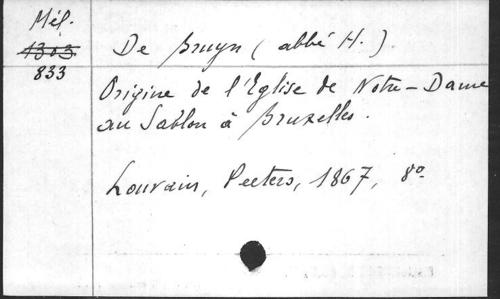 Mél.
1303
833
De Bruyn (abbé H.).
Origine de l'Eglise de Notre-Dame
au Sablon à Bruxelles.
Louvain, Peeters, 1867, 8º